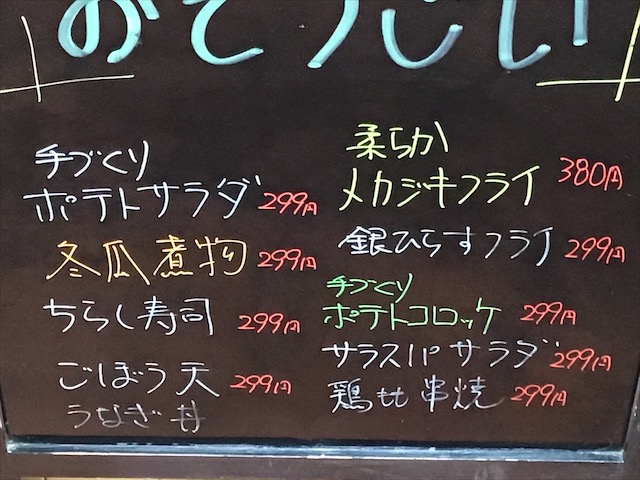 おそうじい
手づくり
ポテトサラダ 299円
冬瓜煮物 299円
ちらし寿司 299円
ごぼう天 299円
うなぎ丼
柔らか
メカジキフライ 380円
銀ひらすフライ 299円
手づくり
ポテトコロッケ 299円
サラスパサラダ 299円
鶏もも串焼 299円